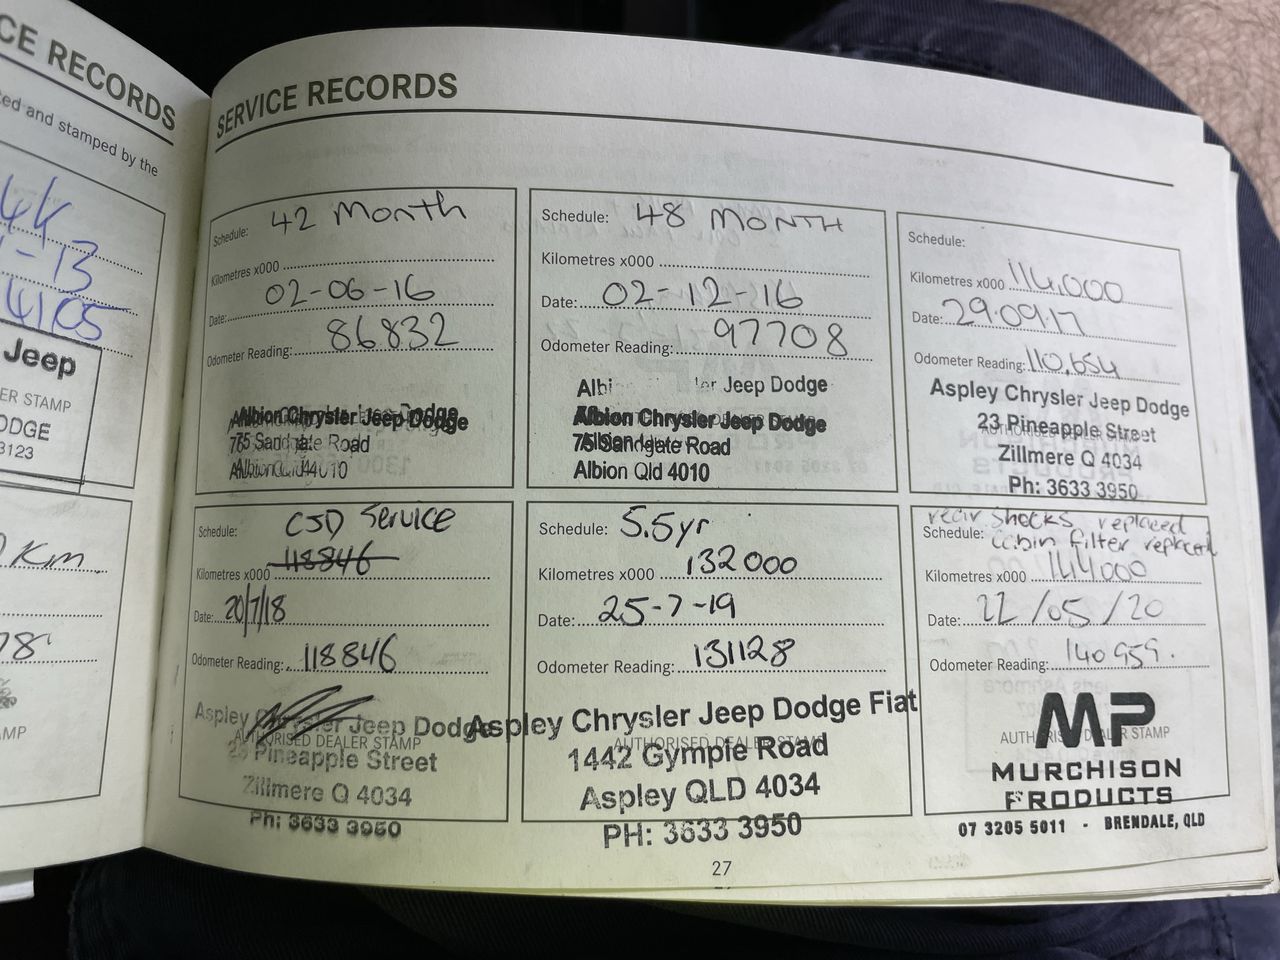 CE RECORDS
ed and stamped by the
4K
-13
4105
Jeep
ER STAMP
ODGE
3123
KM
78
AMP
SERVICE RECORDS
Schedule: 42 Month
Kilometres x000
02-06-16
Date:
86832
Odometer Reading:
Albion Chrysler Jeep Dodge
75 Sandgate Road
Albion Qld 4010
Schedule: 48 MONTH
Kilometres x000
Date: 02-12-16
97708
Odometer Reading:
Jeep Dodge
Albion Chrysler Jeep Dodge
75 Sandgate Road
Albion Qld 4010
Schedule:
Kilometres x000 114,000
Date: 29.09.17
Odometer Reading: 110,654
Aspley Chrysler Jeep Dodge
23 Pineapple Street
Zillmere Q 4034
Ph: 3633 3950
Schedule: CSD Service
118846
Kilometres x000
Date: 20/7/18
Odometer Reading: 118846
Aspley Chrysler Jeep Dodge
AUTHORISED DEALER STAMP
23 Pineapple Street
Zillmere Q 4034
Ph: 3633 3950
Schedule: 5.5yr
Kilometres x000 132000
Date: 25-7-19
Odometer Reading: 131128
Aspley Chrysler Jeep Dodge Fiat
AUTHORISED DEALER STAMP
1442 Gympie Road
Aspley QLD 4034
PH: 3633 3950
rear shocks replaced
Schedule: cabin filter replaced
Kilometres x000 144000
Date: 22/05/20
Odometer Reading: 140959.
MP
STAMP
MURCHISON
PRODUCTS
07 3205 5011 - BRENDALE, QLD
27